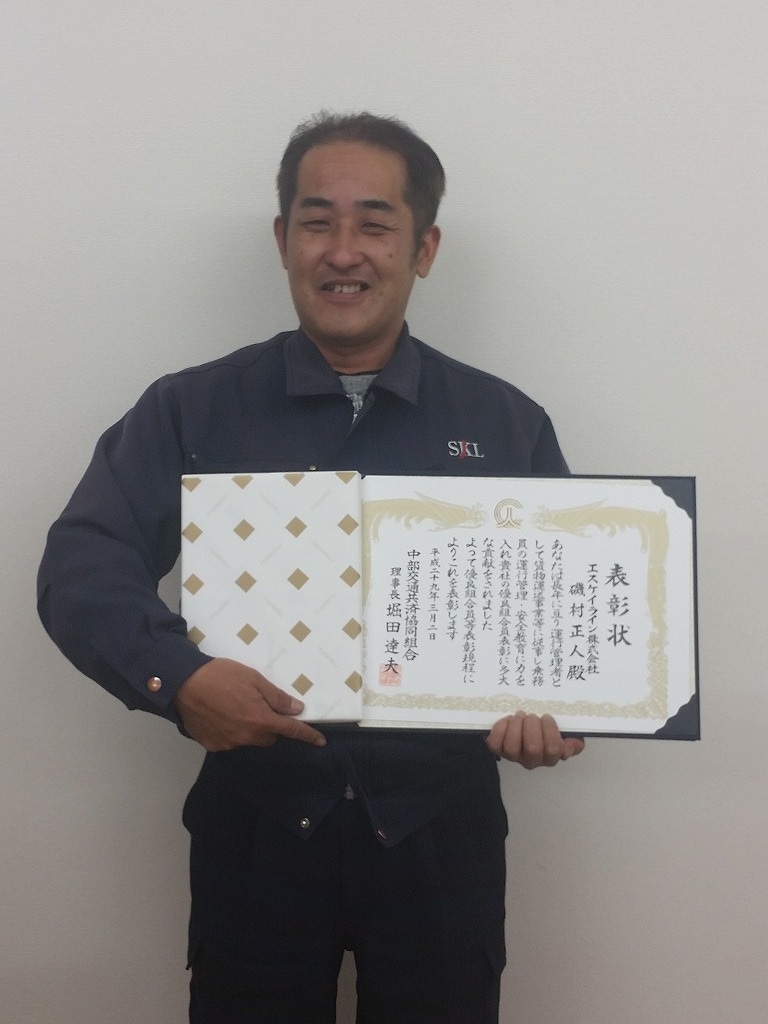 SKL
表彰状
エスケイライン株式会社
磯村正人殿
あなたは長年に亘り運行管理者と
して貨物運送事業等に従事し乗務
員の運行管理・安全教育に力を
入れ貴社の優良組合員表彰に多大
な貢献をされました
よって優良組合員等表彰規程に
よりこれを表彰します
平成二十九年三月二日
中部交通共済協同組合
理事長 堀田達夫